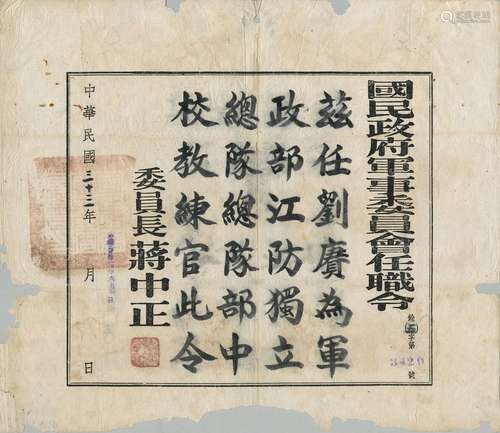 國民政府軍事委員會任職令
銓 字第3420號
茲任劉賡為軍
政部江防獨立
總隊總隊部中
校教練官此令
委員長蔣中正
中華民國三十三年 月 日